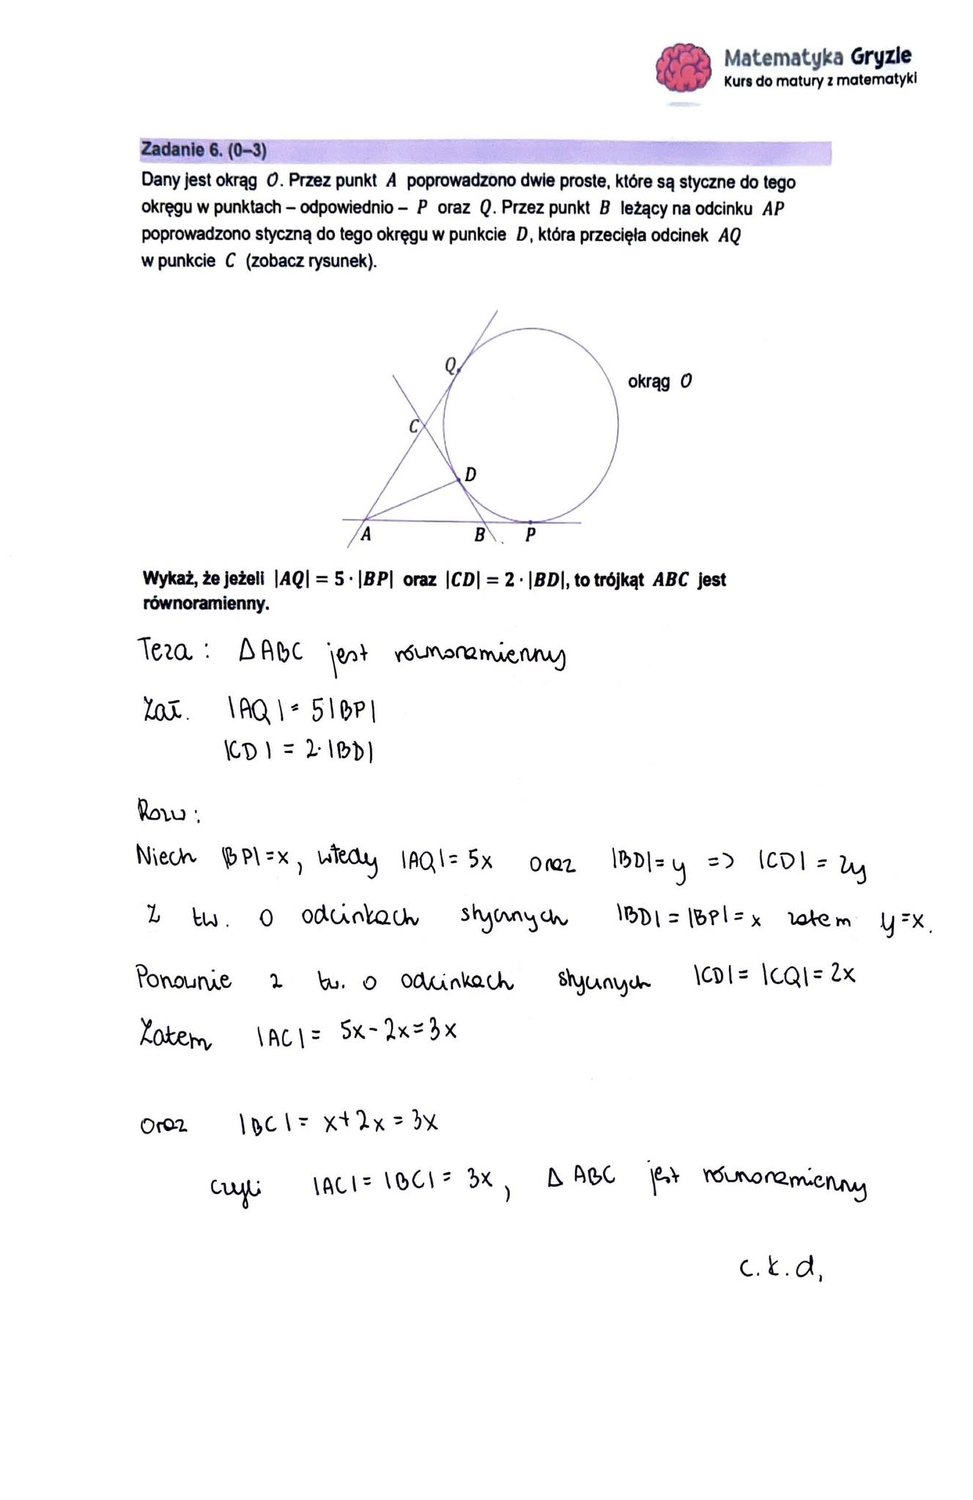 Matematyka Gryzie
Kurs do matury z matematyki
Zadanie 6. (0–3)
Dany jest okrąg O. Przez punkt A poprowadzono dwie proste, które są styczne do tego
okręgu w punktach – odpowiednio – P oraz Q. Przez punkt B leżący na odcinku AP
poprowadzono styczną do tego okręgu w punkcie D, która przecięła odcinek AQ
w punkcie C (zobacz rysunek).
Q
okrąg O
C
D
A
B
P
Wykaż, że jeżeli |AQ| = 5 · |BP| oraz |CD| = 2 · |BD|, to trójkąt ABC jest
równoramienny.
Teza : Δ ABC jest równoramienny
Zał. |AQ| = 5|BP|
|CD| = 2·|BD|
Row :
Niech |BP|=x, wtedy |AQ|= 5x oraz |BD|= y => |CD| = 2y
Z tw. o odcinkach stycznych |BD| = |BP| = x zatem y=x.
Ponownie z tw. o odcinkach stycznych |CD| = |CQ| = 2x
Zatem |AC| = 5x-2x=3x
oraz |BC| = x+2x = 3x
czyli |AC| = |BC| = 3x, Δ ABC jest równoramienny
c.k.d,